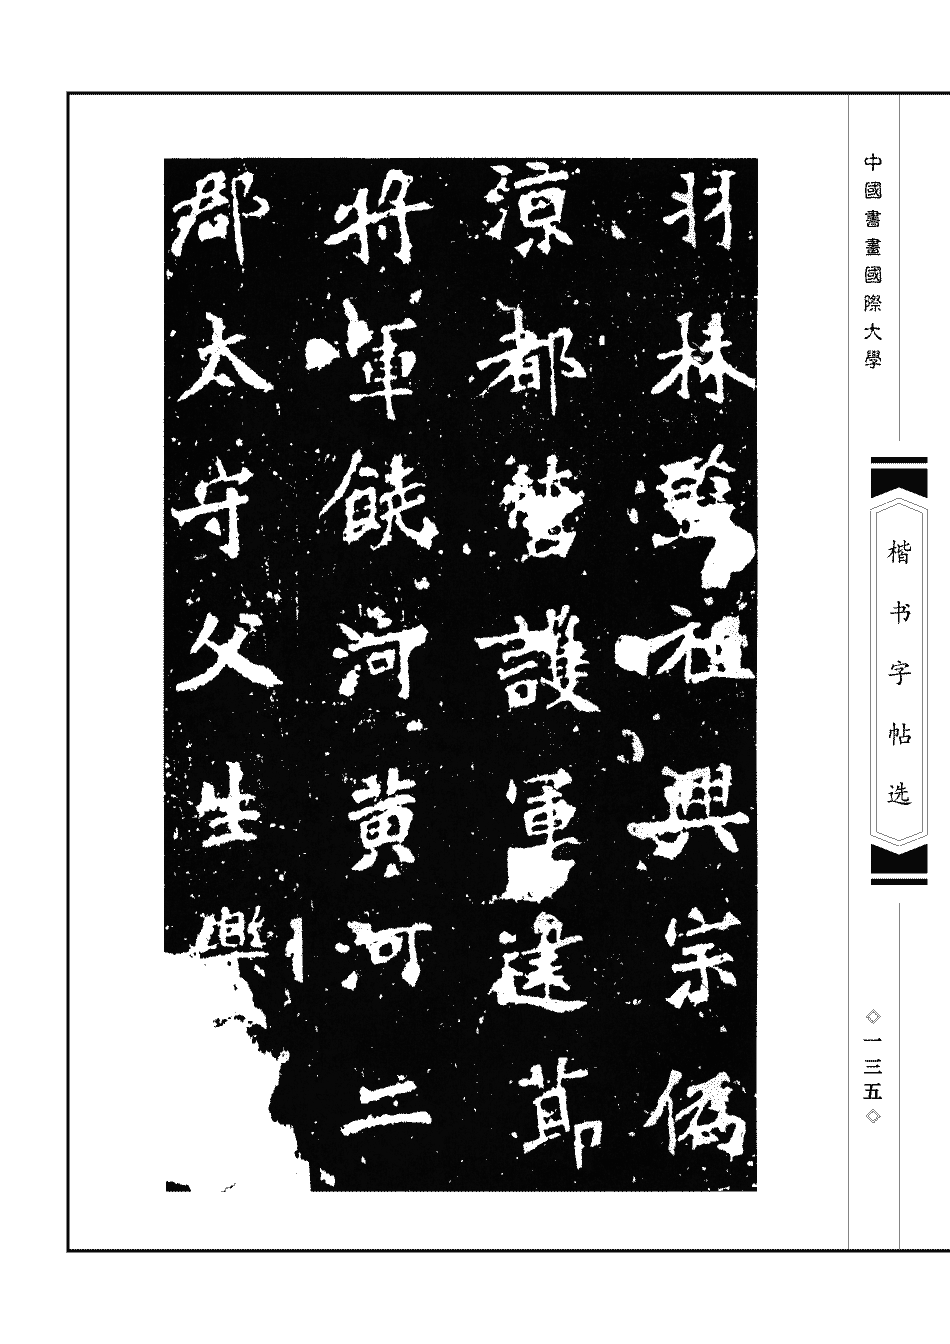 中國書畫國際大學
楷书字帖选
◇一三五◇
羽林監祖興宗偽
涼都營護軍建節
將軍饒河黃河二
郡太守父生樂